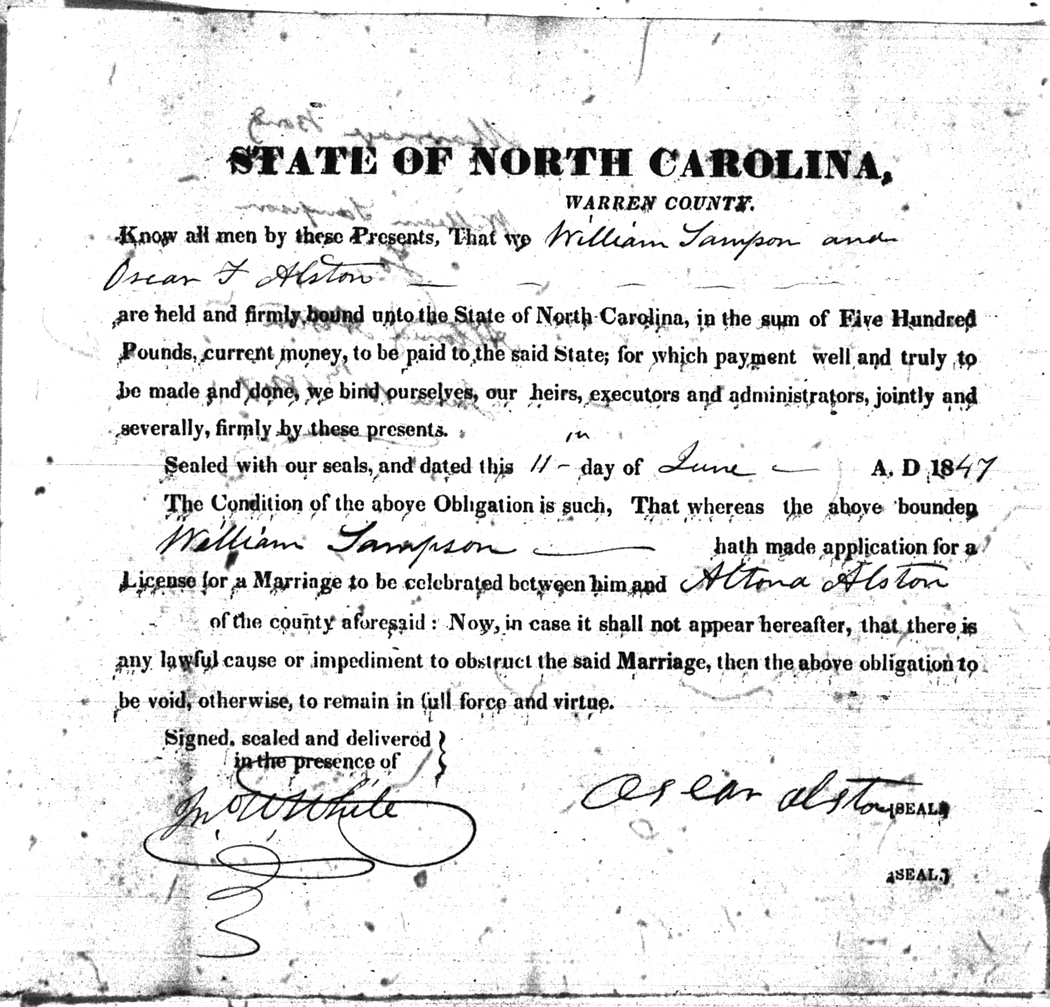 STATE OF NORTH CAROLINA,
WARREN COUNTY.
Know all men by these Presents, That we William Sampson and
Oscar F Alston
are held and firmly bound unto the State of North Carolina, in the sum of Five Hundred
Pounds, current money, to be paid to the said State; for which payment well and truly to
be made and done, we bind ourselves, our heirs, executors and administrators, jointly and
severally, firmly by these presents.
Sealed with our seals, and dated this 11 - day of June A. D 1847
The Condition of the above Obligation is such, That whereas the above bounden
William Sampson hath made application for a
License for a Marriage to be celebrated between him and Altona Alston
of the county aforesaid: Now, in case it shall not appear hereafter, that there is
any lawful cause or impediment to obstruct the said Marriage, then the above obligation to
be void, otherwise, to remain in full force and virtue.
Signed, sealed and delivered }
in the presence of
Jno W White
Oscar Alston (SEAL)
(SEAL.)